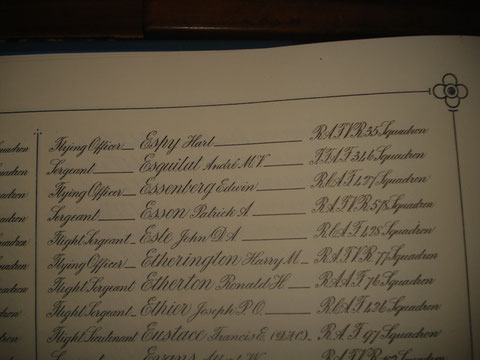 Flying Officer Espy Hart R.A.F.V.R. 35 Squadron
Sergeant Esquilat André M.V. F.F.A.F. 346 Squadron
Flying Officer Essenberg Edwin R.C.A.F. 427 Squadron
Sergeant Esson Patrick A R.A.F.V.R. 578 Squadron
Flight Sergeant Este John D.A. R.C.A.F. 428 Squadron
Flying Officer Etherington Harry M R.A.F.V.R. 77 Squadron
Flight Sergeant Etherton Ronald H R.A.A.F. 76 Squadron
Flight Sergeant Ethier Joseph P.O. R.C.A.F. 426 Squadron
Flight Lieutenant Eustace Francis E. R.A.F. 97 Squadron
Evans